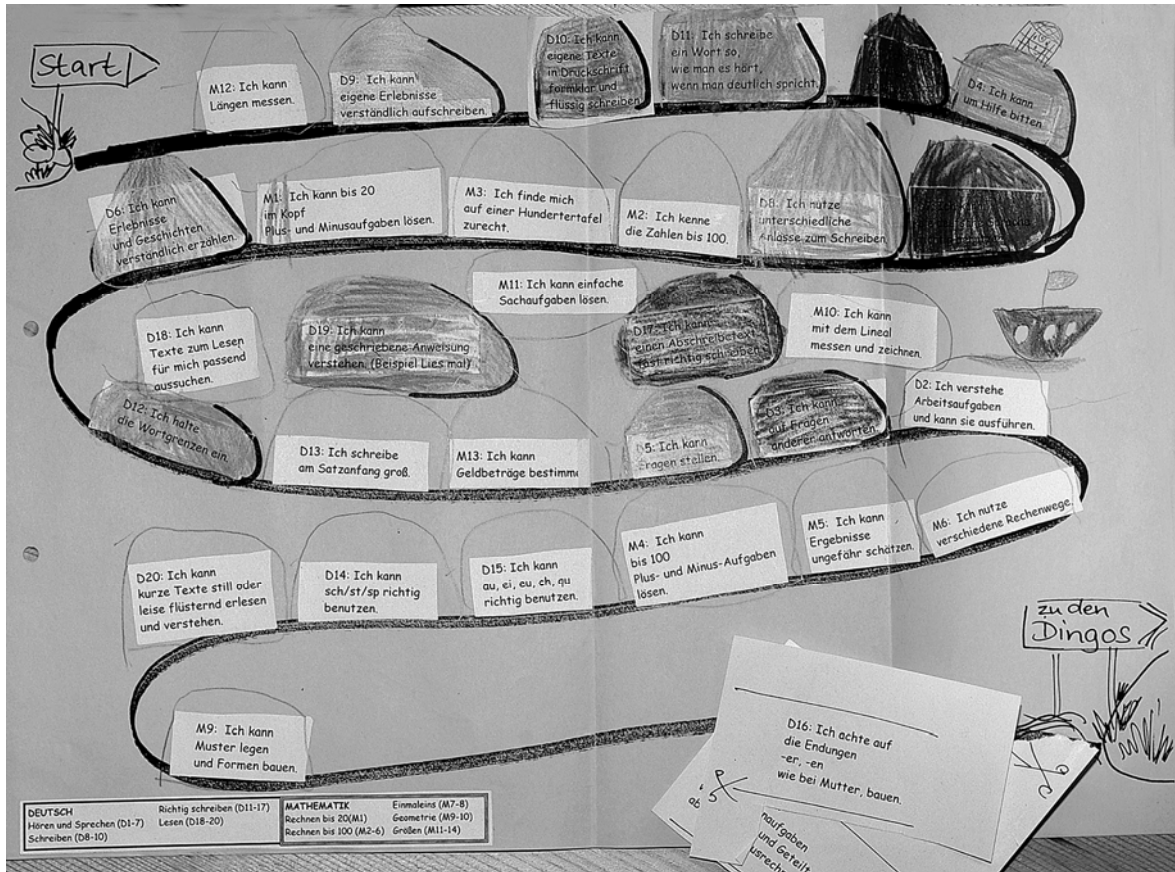 Start
M12: Ich kann
Längen messen.
D9: Ich kann
eigene Erlebnisse
verständlich aufschreiben.
D10: Ich kann
eigene Texte
in Druckschrift
formklar und
flüssig schreiben.
D11: Ich schreibe
ein Wort so,
wie man es hört,
wenn man deutlich spricht.
D4: Ich kann
um Hilfe bitten.
D6: Ich kann
Erlebnisse
und Geschichten
verständlich erzählen.
M1: Ich kann bis 20
im Kopf
Plus- und Minusaufgaben lösen.
M3: Ich finde mich
auf einer Hundertertafel
zurecht.
M2: Ich kenne
die Zahlen bis 100.
D8: Ich nutze
unterschiedliche
Anlässe zum Schreiben.
D18: Ich kann
Texte zum Lesen
für mich passend
aussuchen.
D19: Ich kann
eine geschriebene Anweisung
verstehen. (Beispiel Lies mal)
M11: Ich kann einfache
Sachaufgaben lösen.
D17: Ich kann
einen Abschreibetext
fast richtig schreiben.
M10: Ich kann
mit dem Lineal
messen und zeichnen.
D12: Ich halte
die Wortgrenzen ein.
D13: Ich schreibe
am Satzanfang groß.
M13: Ich kann
Geldbeträge bestimm
D5: Ich kann
Fragen stellen.
D3: Ich kann
auf Fragen
anderer antworten.
D2: Ich verstehe
Arbeitsaufgaben
und kann sie ausführen.
D20: Ich kann
kurze Texte still oder
leise flüsternd erlesen
und verstehen.
D14: Ich kann
sch/st/sp richtig
benutzen.
D15: Ich kann
au, ei, eu, ch, qu
richtig benutzen.
M4: Ich kann
bis 100
Plus- und Minus-Aufgaben
lösen.
M5: Ich kann
Ergebnisse
ungefähr schätzen.
M6: Ich nutze
verschiedene Rechenwege.
zu den
Dingos
M9: Ich kann
Muster legen
und Formen bauen.
D16: Ich achte auf
die Endungen
-er, -en
wie bei Mutter, bauen.
ab
naufgaben
und Geteilt
usrech
DEUTSCH
Hören und Sprechen (D1-7)
Schreiben (D8-10)
Richtig schreiben (D11-17)
Lesen (D18-20)
MATHEMATIK
Rechnen bis 20(M1)
Rechnen bis 100 (M2-6)
Einmaleins (M7-8)
Geometrie (M9-10)
Größen (M11-14)